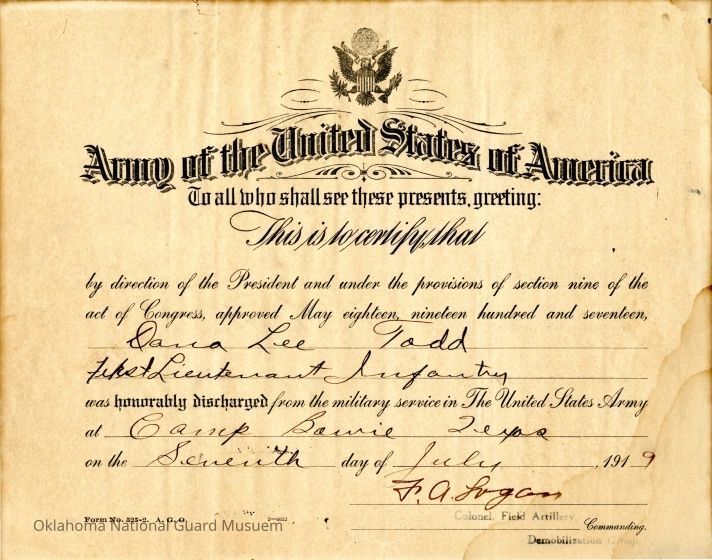 Army of the United States of America
To all who shall see these presents, greeting:
This is to certify, that
by direction of the President and under the provisions of section nine of the
act of Congress, approved May eighteen, nineteen hundred and seventeen,
Dana Lee Todd
First Lieutenant Infantry
was honorably discharged from the military service in The United States Army
at Camp Bowie Texas
on the Seventh day of July, 1919
F. A. Logan
Colonel, Field Artillery,
Form No. 525-2, A. G. O.
Commanding.
Oklahoma National Guard Musuem
Demobilization Group.